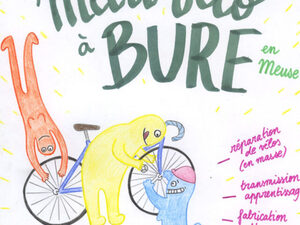 à BURE
en
Meuse
réparation
de vélos
(en masse)
transmission
apprentissag
fabrication